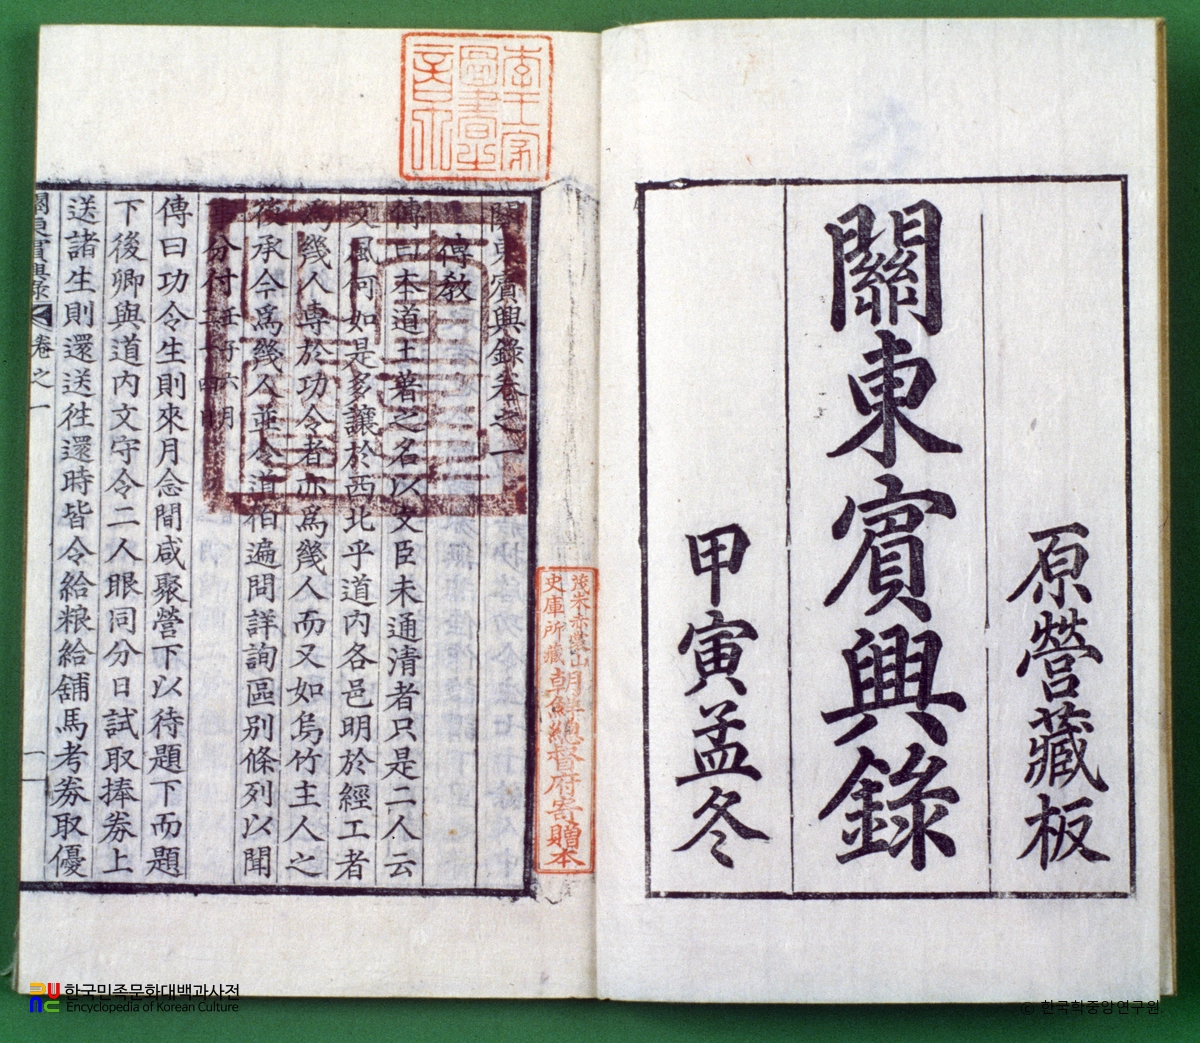 原營藏板
關東賓興錄
甲寅孟冬
李王家
圖書
之章
茂朱赤裳山
史庫所藏
朝鮮總督府寄贈本
關東賓興錄卷之一
傳敎
傳曰本道土著之名以文臣未通淸者只是二人云
文風何如是多讓於西北乎道內各邑明於經工者
爲幾人專於功令者亦爲幾人而又如烏竹主人之
後承今爲幾人並令道伯遍問詳詢區別條列以聞
分付
傳曰功令生則來月念間咸聚營下以待題下而題
下後卿與道內文守令二人眼同分日試取捧券上
送諸生則還送徃還時皆令給粮給舖馬考券取優
關東賓興錄 卷之一
一
한국민족문화대백과사전
Encyclopedia of Korean Culture
ⓒ 한국학중앙연구원